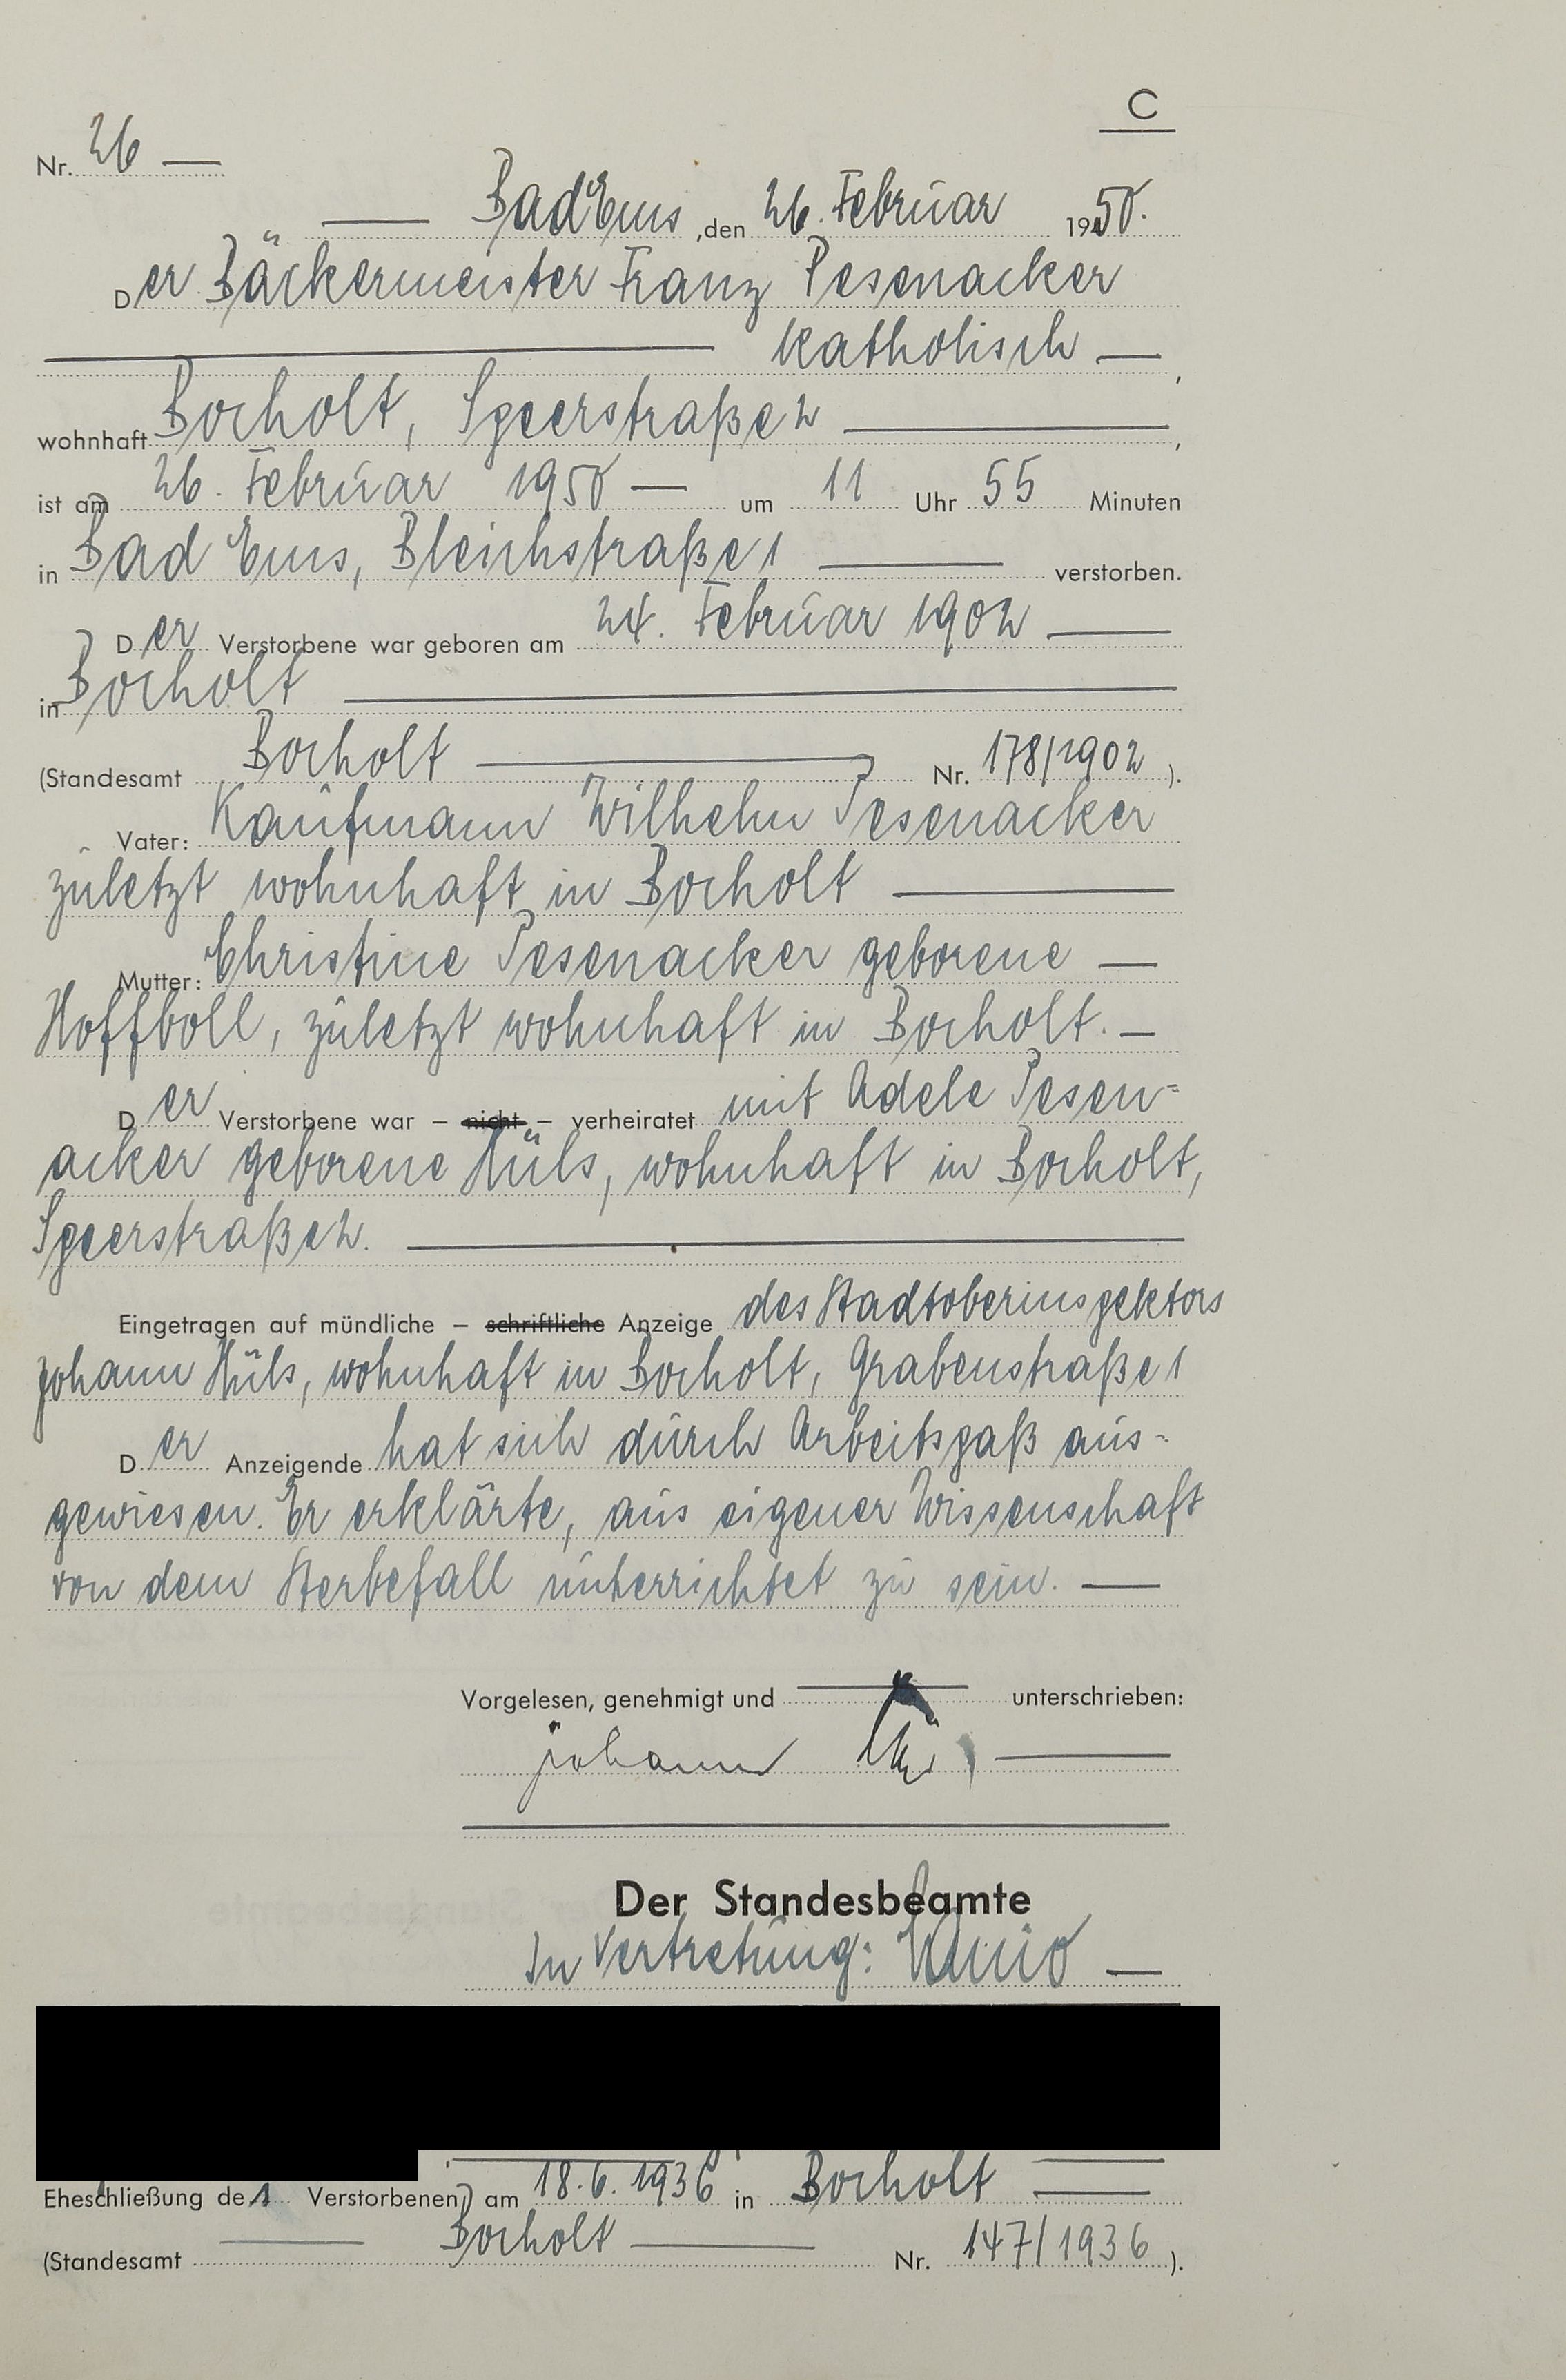 C
Nr. 26 —
— Bad Ems, den 26. Februar 1950.
Der Bäckermeister Franz Pesenacker
— katholisch —,
wohnhaft Bocholt, Speerstraße 2 —,
ist am 26. Februar 1950 — um 11 Uhr 55 Minuten
in Bad Ems, Bleichstraße 1 — verstorben.
Der Verstorbene war geboren am 24. Februar 1902 —
in Bocholt —
(Standesamt Bocholt — Nr. 178/1902).
Vater: Kaufmann Wilhelm Pesenacker
zuletzt wohnhaft in Bocholt —
Mutter: Christine Pesenacker geborene —
Hoffboll, zuletzt wohnhaft in Bocholt. —
Der Verstorbene war – nicht – verheiratet mit Adele Pesen-
acker geborene Hüls, wohnhaft in Bocholt,
Speerstraße 2. —
Eingetragen auf mündliche – schriftliche Anzeige des Stadtoberinspektors
Johann Hüls, wohnhaft in Bocholt, Grabenstraße 1
Der Anzeigende hat sich durch Arbeitspaß aus-
gewiesen. Er erklärte, aus eigener Wissenschaft
von dem Sterbefall unterrichtet zu sein. —
Vorgelesen, genehmigt und — unterschrieben:
Johann —
Der Standesbeamte
In Vertretung: —
Eheschließung des Verstorbenen am 18.6.1936 in Bocholt —
(Standesamt — Bocholt — Nr. 147/1936).